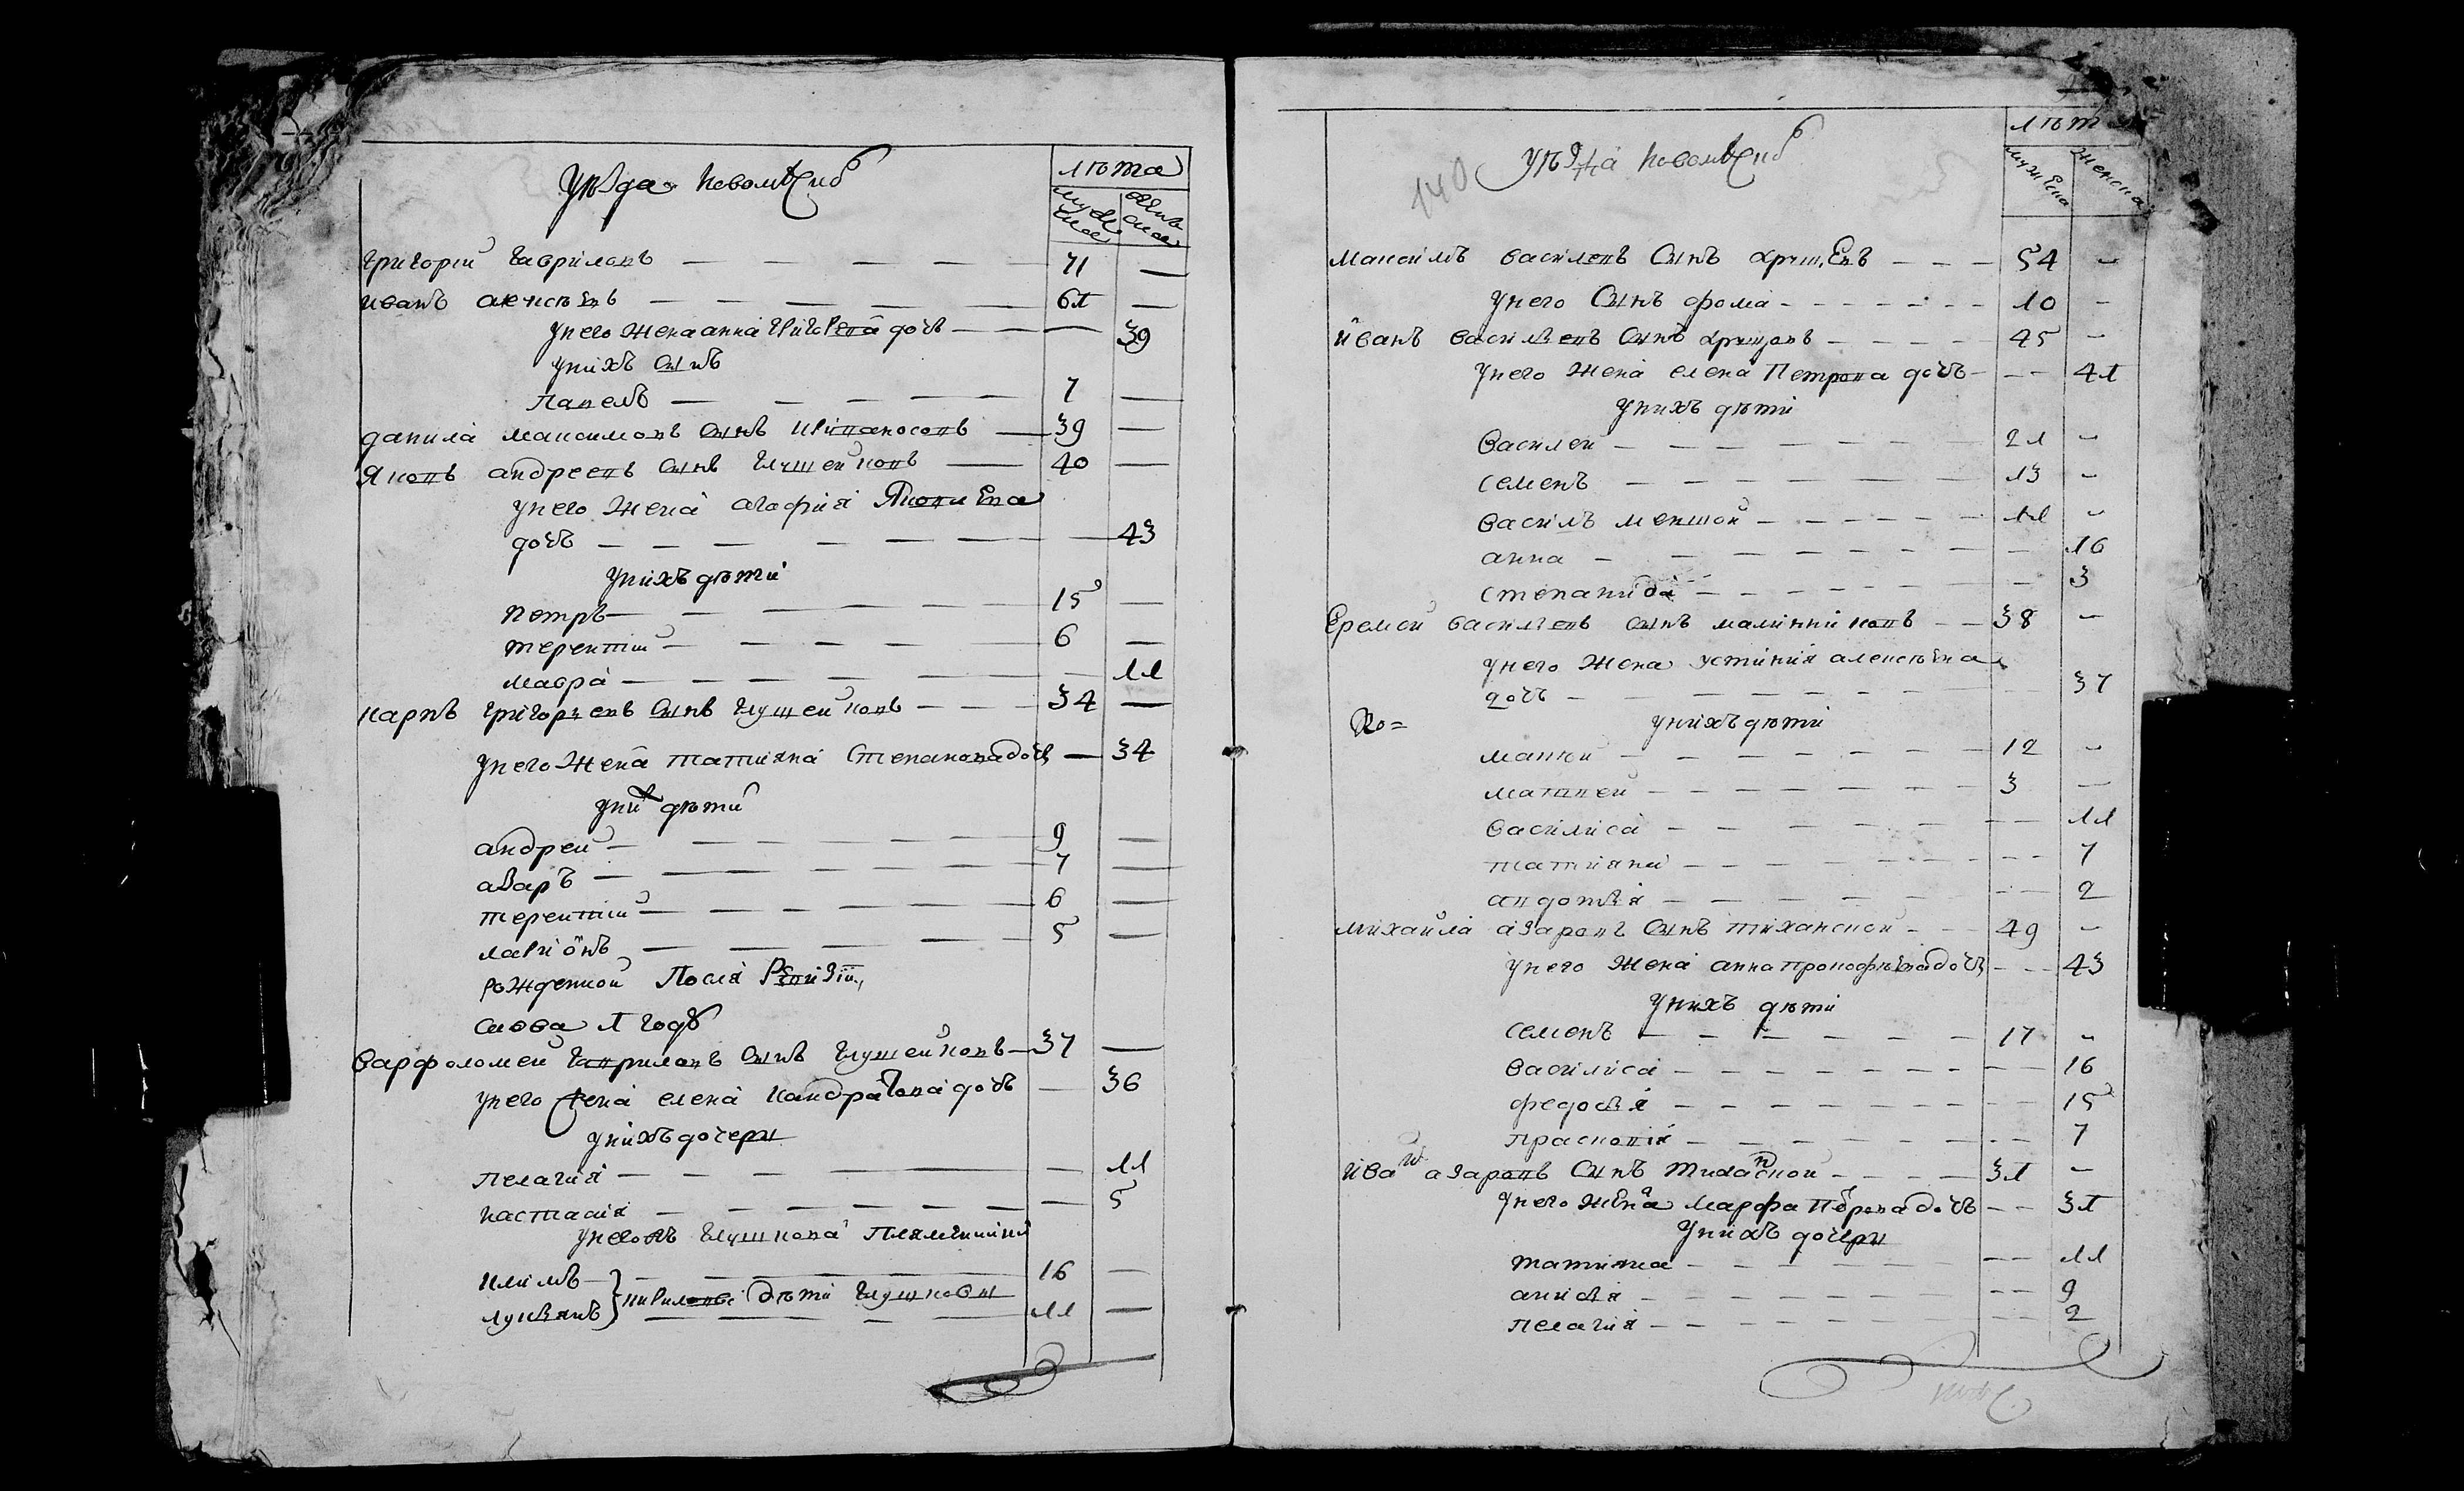 уѣзда
лѣта
мужеска
женска
Григорей Гавриловъ — 71 —
Иванъ Алексѣевъ — 61 —
у него жена анна Григорева дочь — 39
у нихъ сынъ
павелъ — 7 —
данила максимовъ сынъ — 39 —
Яковъ андреевъ сынъ Глушенковъ — 40 —
у него жена агафия Яковлева
дочь — 43
у нихъ дѣти
петръ — 15 —
терентий — 6 —
мавра — 11
карпъ григорьевъ сынъ Глушенковъ — 34 —
у него жена татияна степанова дочь — 34
у них дѣти
андрей — 9 —
азаръ — 7 —
терентий — 6 —
ларионъ — 5 —
рожденной после Ревизии
снова 1 годъ
варфоломей гавриловъ сынъ Глушенковъ — 37 —
у него жена елена кандратова дочь — 36
у нихъ дочери
пелагия — 11
настасия — 5
у него Глушкова племянники
климъ — 16 —
лукьянъ } кириловы дѣти Глушковы 11 —
140 уѣзда
лѣта
мужеска
женска
максимъ василевъ сынъ хрущевъ — 54 —
у него сынъ фома — 10 —
иванъ василевъ сынъ хрущовъ — 45 —
у него жена елена Петрова дочь — 41
у нихъ дѣти
василей — 21 —
семенъ — 13 —
василъ меншой — 11 —
анна — 16
степанида — 3
Еремей василевъ сынъ малинниковъ — 38 —
у него жена устиния алексѣева
дочь — 37
у нихъ дѣти
12 —
матвей — 3 —
василиса — 11
татияна — 7
авдотья — 2
михайла азаровъ сынъ тиханской — 49 —
у него жена анна прокофьева дочь — 43
у нихъ дѣти
семенъ — 17 —
василиса — 16
федосья — 15
прасковия — 7
иванъ азаровъ сынъ тиханской — 31 —
у него жена марфа петрова дочь — 31
у нихъ дочери
татияна — 11
анисья — 9
пелагия — 2